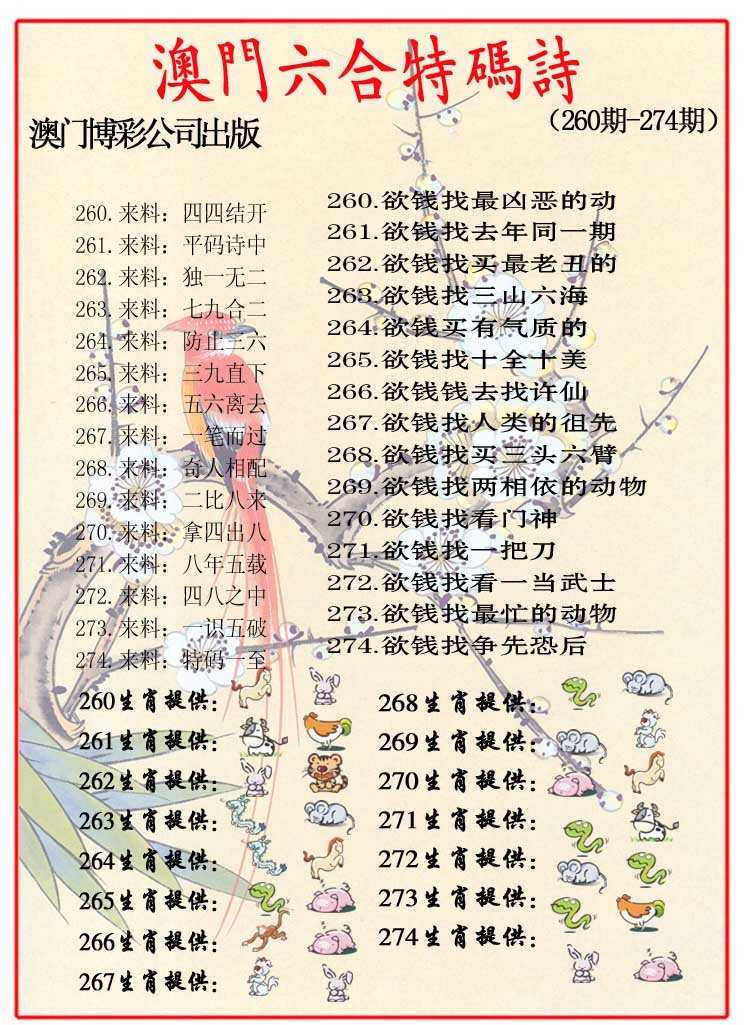 澳門六合特碼詩
澳门博彩公司出版
（260期-274期）
260.来料：四四结开
261.来料：平码诗中
262.来料：独一无二
263.来料：七九合二
264.来料：防止三六
265.来料：三九直下
266.来料：五六离去
267.来料：一笔而过
268.来料：奇人相配
269.来料：二比八来
270.来料：拿四出八
271.来料：八年五载
272.来料：四八之中
273.来料：一识五破
274.来料：特码一至
260.欲钱找最凶恶的动
261.欲钱找去年同一期
262.欲钱找买最老丑的
263.欲钱找三山六海
264.欲钱买有气质的
265.欲钱找十全十美
266.欲钱钱去找许仙
267.欲钱找人类的祖先
268.欲钱找买三头六臂
269.欲钱找两相依的动物
270.欲钱找看门神
271.欲钱找一把刀
272.欲钱找看一当武士
273.欲钱找最忙的动物
274.欲钱找争先恐后
260生肖提供：
261生肖提供：
262生肖提供：
263生肖提供：
264生肖提供：
265生肖提供：
266生肖提供：
267生肖提供：
268生肖提供：
269生肖提供：
270生肖提供：
271生肖提供：
272生肖提供：
273生肖提供：
274生肖提供：